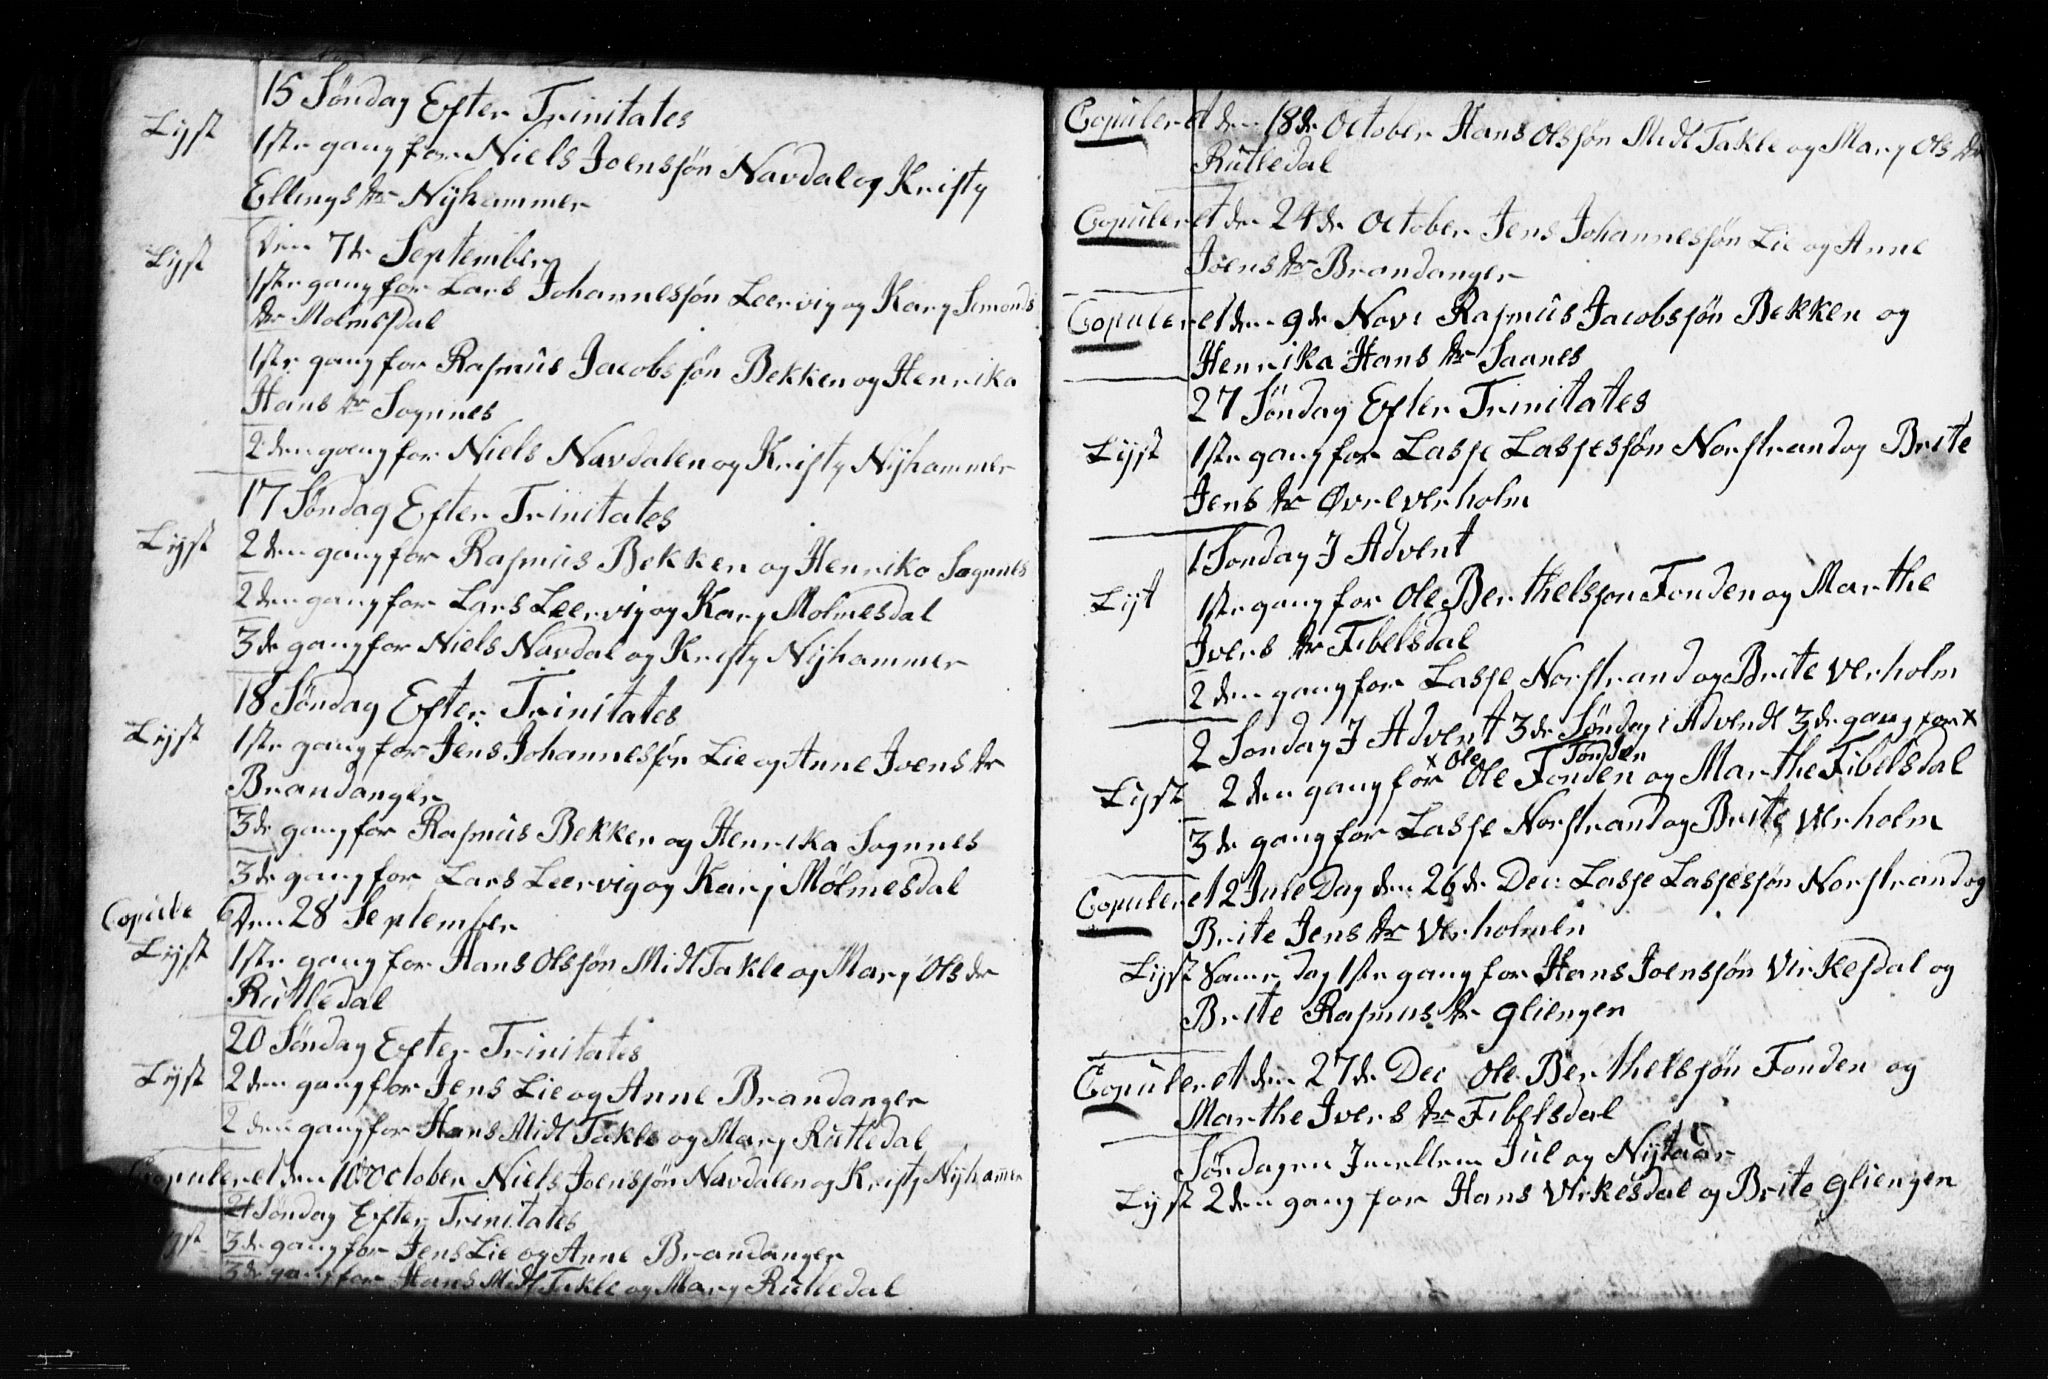 15 Søndag Efter Trinitates
Lyst 1ste gang for Niels Joensøn Navdal og Kristy
Ellings dtr Nÿhammer
den 7de September
Lyst 1ste gang for Lars Johannessøn Leervig og Kary Simonds
dtr Molmesdal
1ste gang for Rasmus Jacobssøn Bekken og Henrika
Hans dtr Sognnes
2den gang for Niels Navdalen og Kristy Nÿhammer
17 Søndag Efter Trinitates
Lyst 2den gang for Rasmus Bekken og Henrika Sognnes
2den gang for Lars Leervig og Kary Molmesdal
3de gang for Niels Navdal og Kristy Nÿhammer
18 Søndag Efter Trinitates
Lyst 1ste gang for Jens Johannessøn Lie og Anne Joens dtr
Brandanger
3de gang for Rasmus Bekken og Henrika Sognnes
3de gang for Lars Leervig og Kary Mølmesdal
Den 28 September
Lyst 1ste gang for Hans Olssøn Midt Takle og Mary Ols dtr
Rutledal
20 Søndag Efter Trinitates
Lyst 2den gang for Jens Lie og Anne Brandanger
2den gang for Hans Midt Takle og Mary Rutledal
Copuleret den 10 October Niels Joenssøn Navdalen og Kristy Nÿhammer
21 Søndag Efter Trinitates
Lyst 3de gang for Jens Lie og Anne Brandanger
3de gang for Hans Midt Takle og Mary Rutledal
Copuleret den 18de October Hans Olssøn Midt Takle og Mary Ols dtr
Rutledal
Copuleret den 24de October Jens Johannessøn Lie og Anne
Joens dtr Brandanger
Copuleret den 9de Nov: Rasmus Jacobssøn Bekken og
Henrika Hans dtr Saanes
27 Søndag Efter Trinitates
Lyst 1ste gang for Lasse Lassessøn Norstrand og Brite
Jens dtr Øvre Verholm
1 Søndag J Advent
Lyt 1ste gang for Ole Berthelssøn Fonden og Marthe
Ivers dtr Fibelsdal
2den gang for Lasse Norstrand og Brite Verholm
2 Søndag J Advent 3de Søndag i Advendt 3de gang for x
x Ole Fonden
Lyst 2den gang for Ole Fonden og Marthe Fibelsdal
3de gang for Lasse Norstrand og Brite Verholm
Copuleret 2 Jule Dag den 26de Dec: Lasse Lassessøn Norstrand og
Brite Jens dtr Verholmen
Lyst Same dag 1ste gang for Hans Joenssøn Virkesdal og
Brite Rasmus dtr Gliengen
Copuleret den 27de Dec Ole Berthelssøn Fonden og
Marthe Ivers dtr Fibelsdal
Søndagen Jmellem Jul og Nÿtaar
Lyst 2den gang for Hans Virkesdal og Brite Gliengen